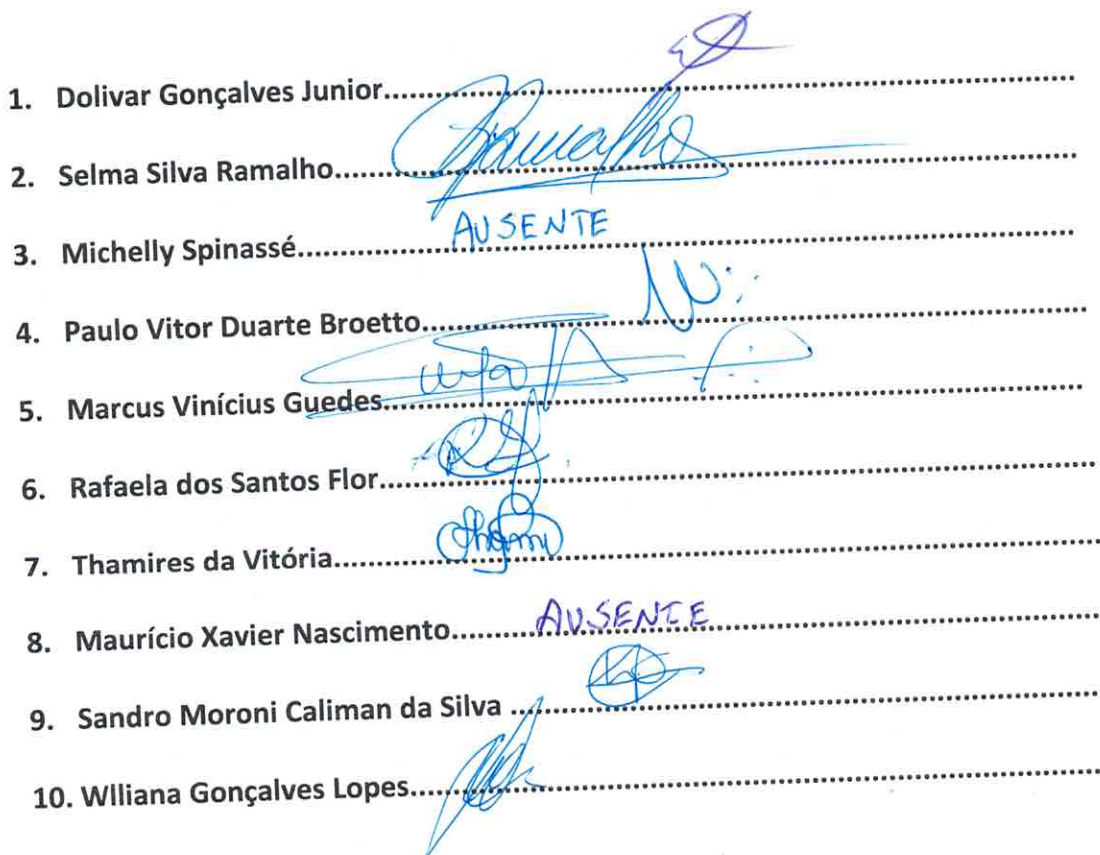 1. Dolivar Gonçalves Junior
2. Selma Silva Ramalho Ramalho
3. Michelly Spinassé AUSENTE
4. Paulo Vitor Duarte Broetto
5. Marcus Vinícius Guedes
6. Rafaela dos Santos Flor
7. Thamires da Vitória
8. Maurício Xavier Nascimento AUSENTE
9. Sandro Moroni Caliman da Silva
10. Wlliana Gonçalves Lopes